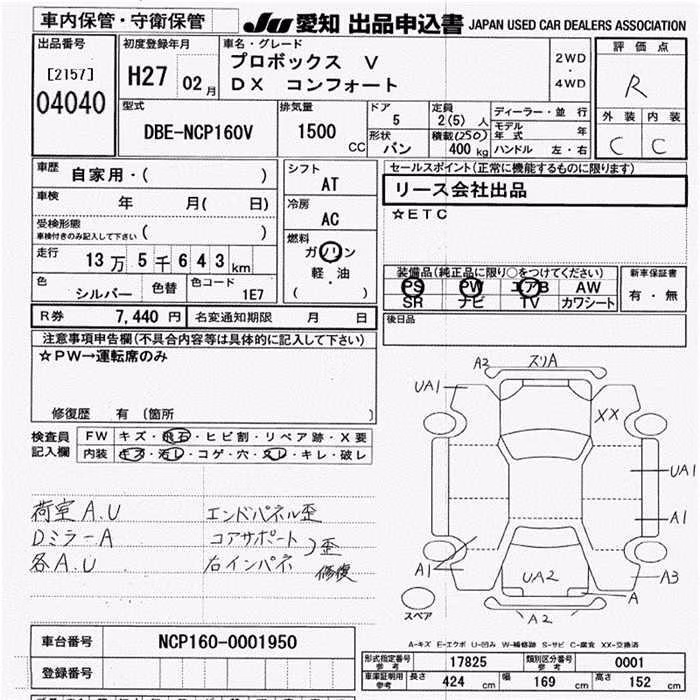 車内保管・守衛保管
JU 愛知 出品申込書 JAPAN USED CAR DEALERS ASSOCIATION
出品番号
[2157]
04040
初度登録年月
H27 02 月
車名・グレード
プロボックス V
DX コンフォート
2WD
・
4WD
評価点
R
外装 内装
C C
型式
DBE-NCP160V
排気量
1500
CC
ドア
5
形状
バン
定員
2(5) 人
積載(250)
400 kg
ディーラー・並行
モデル年式 年
ハンドル 左・右
車歴
自家用・( )
車検
年 月( 日)
受検形態
車検付きのみ記入して下さい ( )
走行
13万5千643km
色
シルバー
色替
色コード
1E7
シフト
AT
冷房
AC
燃料
ガソリン
軽・油
( )
セールスポイント(正常に機能するものに限ります)
リース会社出品
☆ETC
装備品(純正品に限り○をつけてください)
PS PW エアB AW
SR ナビ TV カワシート
新車保証書
有・無
後日品
R券 7,440 円 名変通知期限 月 日
注意事項申告欄(不具合内容等は具体的に記入して下さい)
☆PW→運転席のみ
修復歴 有 (箇所 )
検査員
記入欄
FW キズ・飛石・ヒビ割・リペア跡・X要
内装 キズ・汚レ・コゲ・穴・スレ・キレ・破レ
荷室 A.U エンドパネル歪
Dミラー A コアサポート
各 A.U 右インパネ
歪
修復
A2 スリA
UA1
XX
UA1
A1
A1
UA2
A3
A
A2
スペア
A-キズ E-エクボ U-凹み W-補修跡 S-サビ C-腐食 XX-交換済
車台番号 NCP160-0001950
登録番号
形式指定番号 参考 17825 類別区分番号 参考 0001
車庫証明用 参考 長さ 424 cm 幅 169 cm 高さ 152 cm